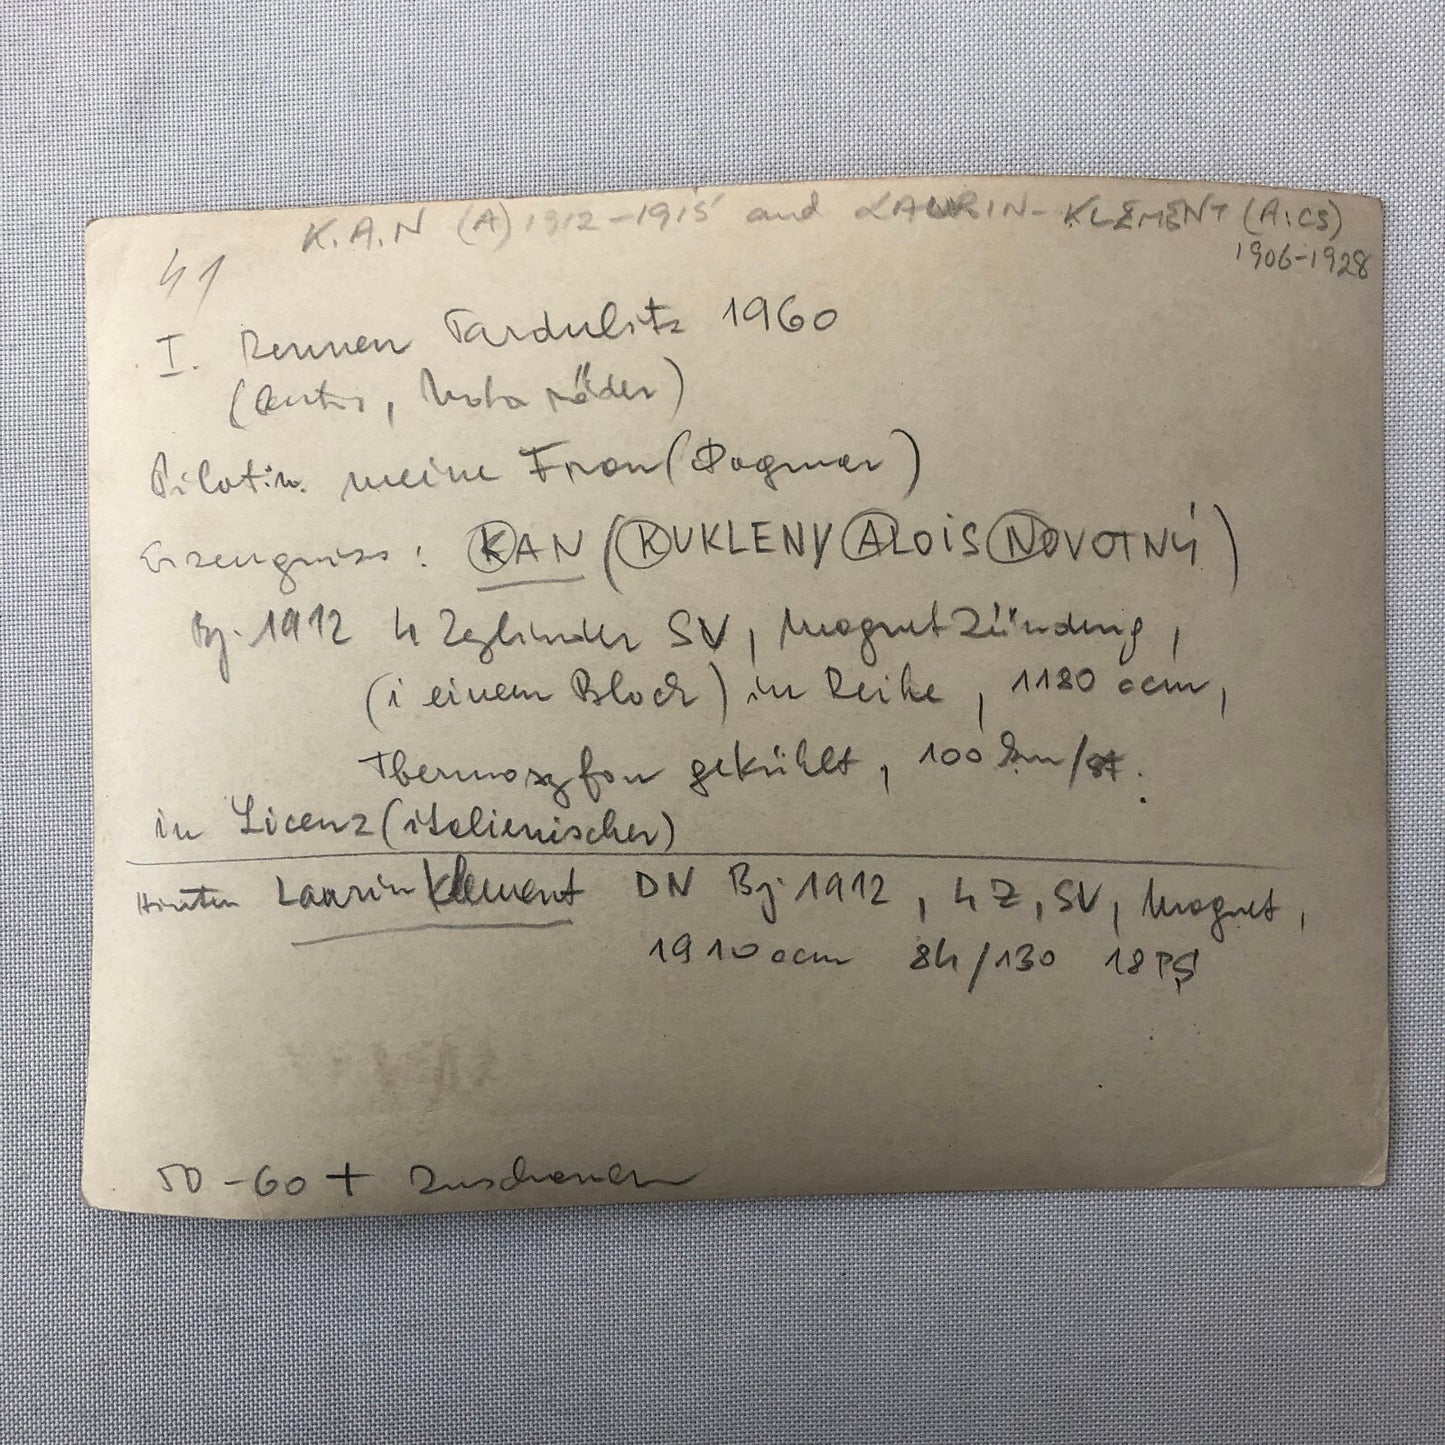 K.A.N (A) 1912-1915 and LAURIN-KLEMENT (A:CS)
1906-1928
41
I. Rennen Pardubitz 1960
(Autos, Motorräder)
Pilotin meine Frau (Dagmar)
Erzeugniss: KAN (KUKLENY ALOIS NOVOTNÝ)
Bj. 1912 4 Zylinder SV, Magnet Zündung,
(i einem Block) in Reihe, 1180 ccm,
Thermosyfon gekühlt, 100 km/st.
in Licenz (italienischer)
Hinten Laurin Klement DN Bj. 1912, 4 Z, SV, Magnet,
1910 ccm 84/130 18 PS
50-60 + Zuschauer